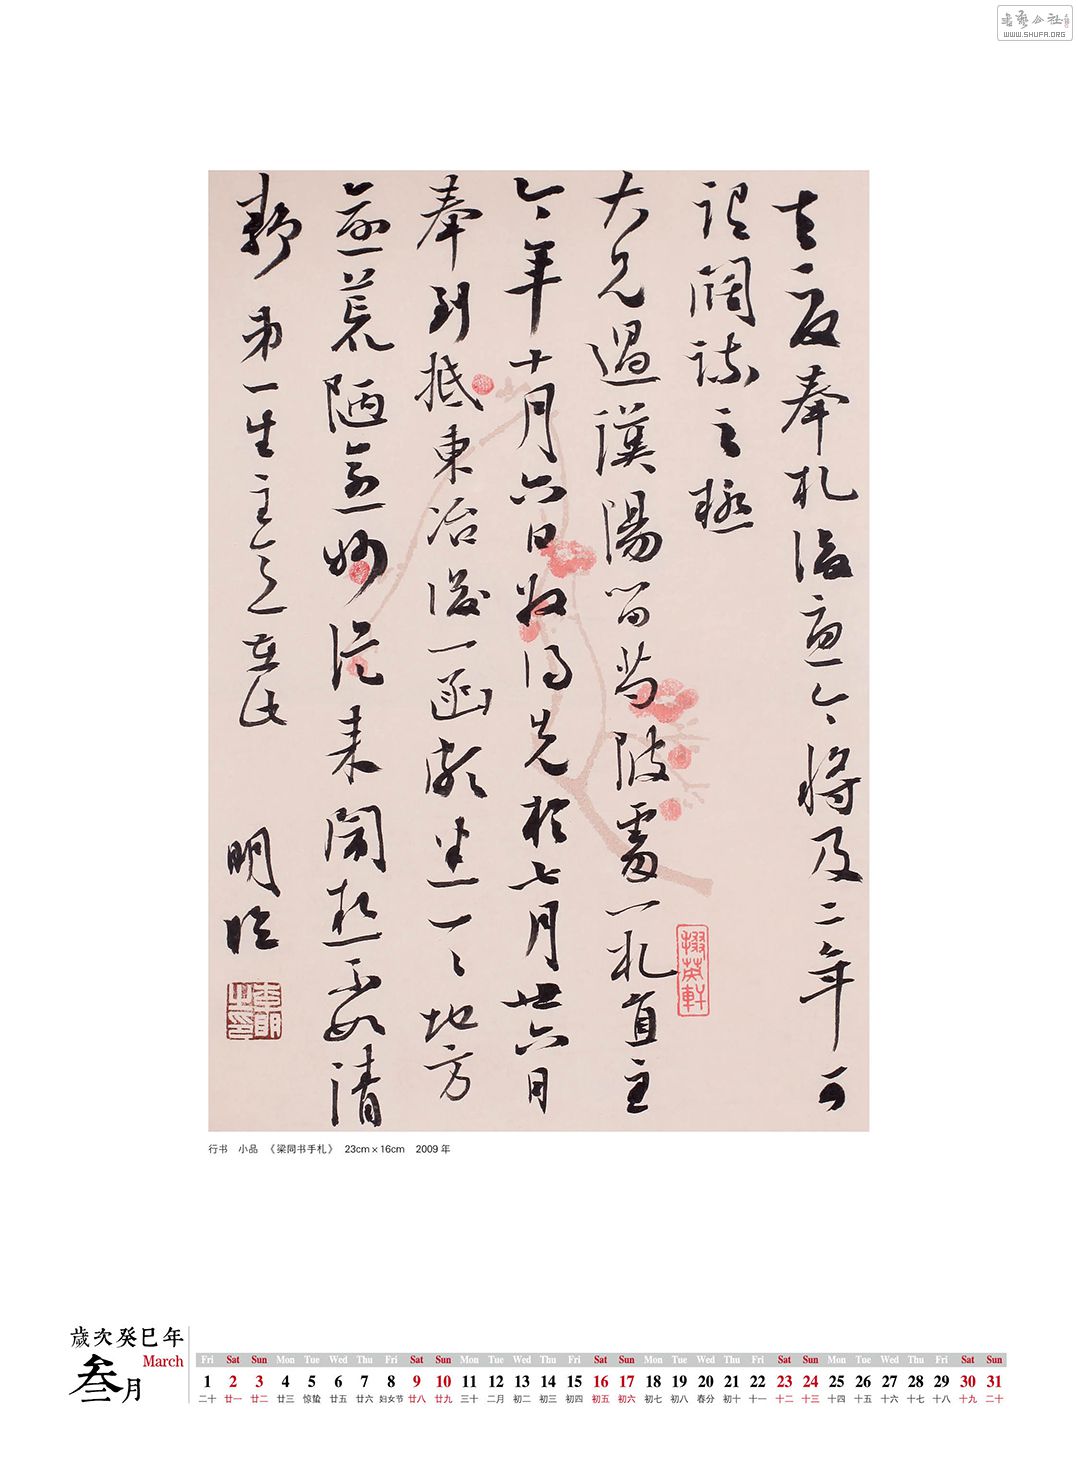 書藝公社
WWW.SHUFA.ORG
去夏奉札 今將及二年可
闊疎之極
大兄過漢陽留芍陂處一札直至
今年十月六日 得先於七月廿六日
奉到抵東冶後一函 一一地方
荒陋 妙從來鬧熱不如清
靜 弟一生主意在此
明臨
掇英軒
行书 小品 《梁同书手札》 23cm×16cm 2009 年
歲次癸巳年
叁月 March
Fri Sat Sun Mon Tue Wed Thu Fri Sat Sun Mon Tue Wed Thu Fri Sat Sun Mon Tue Wed Thu Fri Sat Sun Mon Tue Wed Thu Fri Sat Sun
1 2 3 4 5 6 7 8 9 10 11 12 13 14 15 16 17 18 19 20 21 22 23 24 25 26 27 28 29 30 31
二十 廿一 廿二 廿三 惊蛰 廿五 廿六 妇女节 廿八 廿九 三十 二月 初二 初三 初四 初五 初六 初七 初八 春分 初十 十一 十二 十三 十四 十五 十六 十七 十八 十九 二十